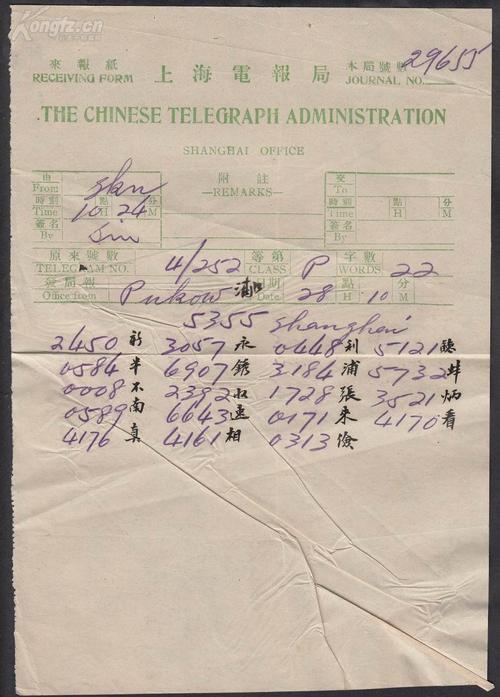 Kongfz.cn
來報紙 上海電報局 本局號數
RECEIVING FORM JOURNAL NO. 29655
THE CHINESE TELEGRAPH ADMINISTRATION
SHANGHAI OFFICE
由 附註 交
From —REMARKS— To
時刻 點 分 時刻 點 分
Time 10 H 24 M Time H M
簽名 簽名
By By
原來號數 等第 字數
TELEGRAM NO. 4/252 CLASS P WORDS 22
發報 日期 點 分
Office from Pukow 浦口 Date 28 H 10 M
5355 Shanghai
2450 新 3057 永 0448 利 5121
0584 半 6907 3184 浦 5732 蚌
0008 不 2392 收 1728 張 3521 炳
0589 南 6643 速 0171 來 4170 看
4176 真 4161 相 0313 儉